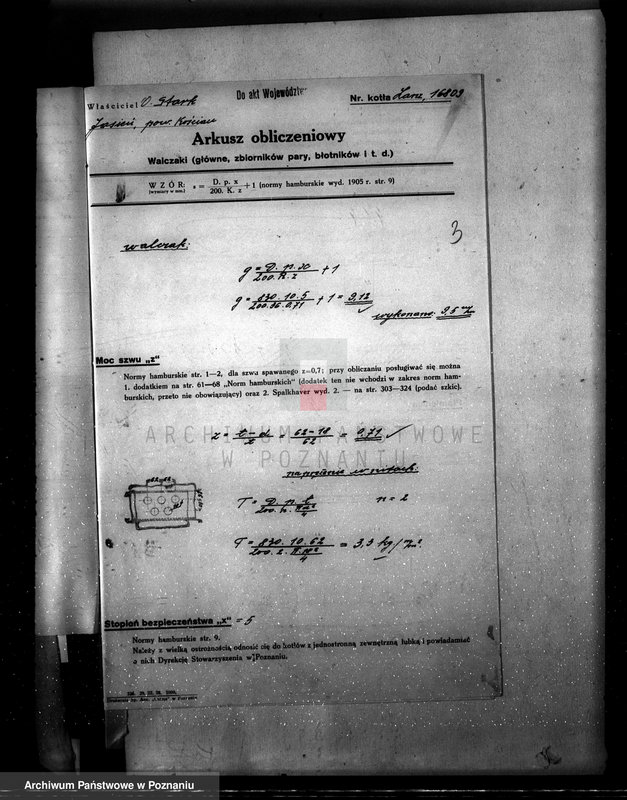 Do akt Województw
Właściciel V. Stark
Nr. kotła Lanz, 16809
Jasień, pow. Kościan
Arkusz obliczeniowy
Walczaki (główne, zbiorników pary, błotników i t. d.)
WZÓR: s = D. p. x / 200. K. z + 1 (normy hamburskie wyd. 1905 r. str. 9)
(wymiary w mm.)
3
walczak:
g = D. p. x / 200. K. z + 1
g = 830. 10. 5 / 200. 36. 0,71 + 1 = 9,12
wykonano 9,5 mm
Moc szwu „z"
Normy hamburskie str. 1—2, dla szwu spawanego z=0,7; przy obliczaniu posługiwać się można
1. dodatkiem na str. 61—68 „Norm hamburskich" (dodatek ten nie wchodzi w zakres norm ham-
burskich, przeto nie obowiązujący) oraz 2. Spalkhaver wyd. 2. — na str. 303—324 (podać szkic).
ARCHIWUM PAŃSTWOWE
W POZNANIU
z = t - d / t = 62 - 18 / 62 = 0,71
naprężenie w nitach:
T = D. p. t / 200. n. π d² / 4
n = 2
T = 830. 10. 62 / 200. 2. π 18² / 4 = 3,3 kg/m².
Stopień bezpieczeństwa „x" = 5
Normy hamburskie str. 9.
Należy z wielką ostrożnością odnosić się do kotłów z jednostronną zewnętrzną łubką i powiadamiać
o nich Dyrekcję Stowarzyszenia w Poznaniu.
Archiwum Państwowe w Poznaniu